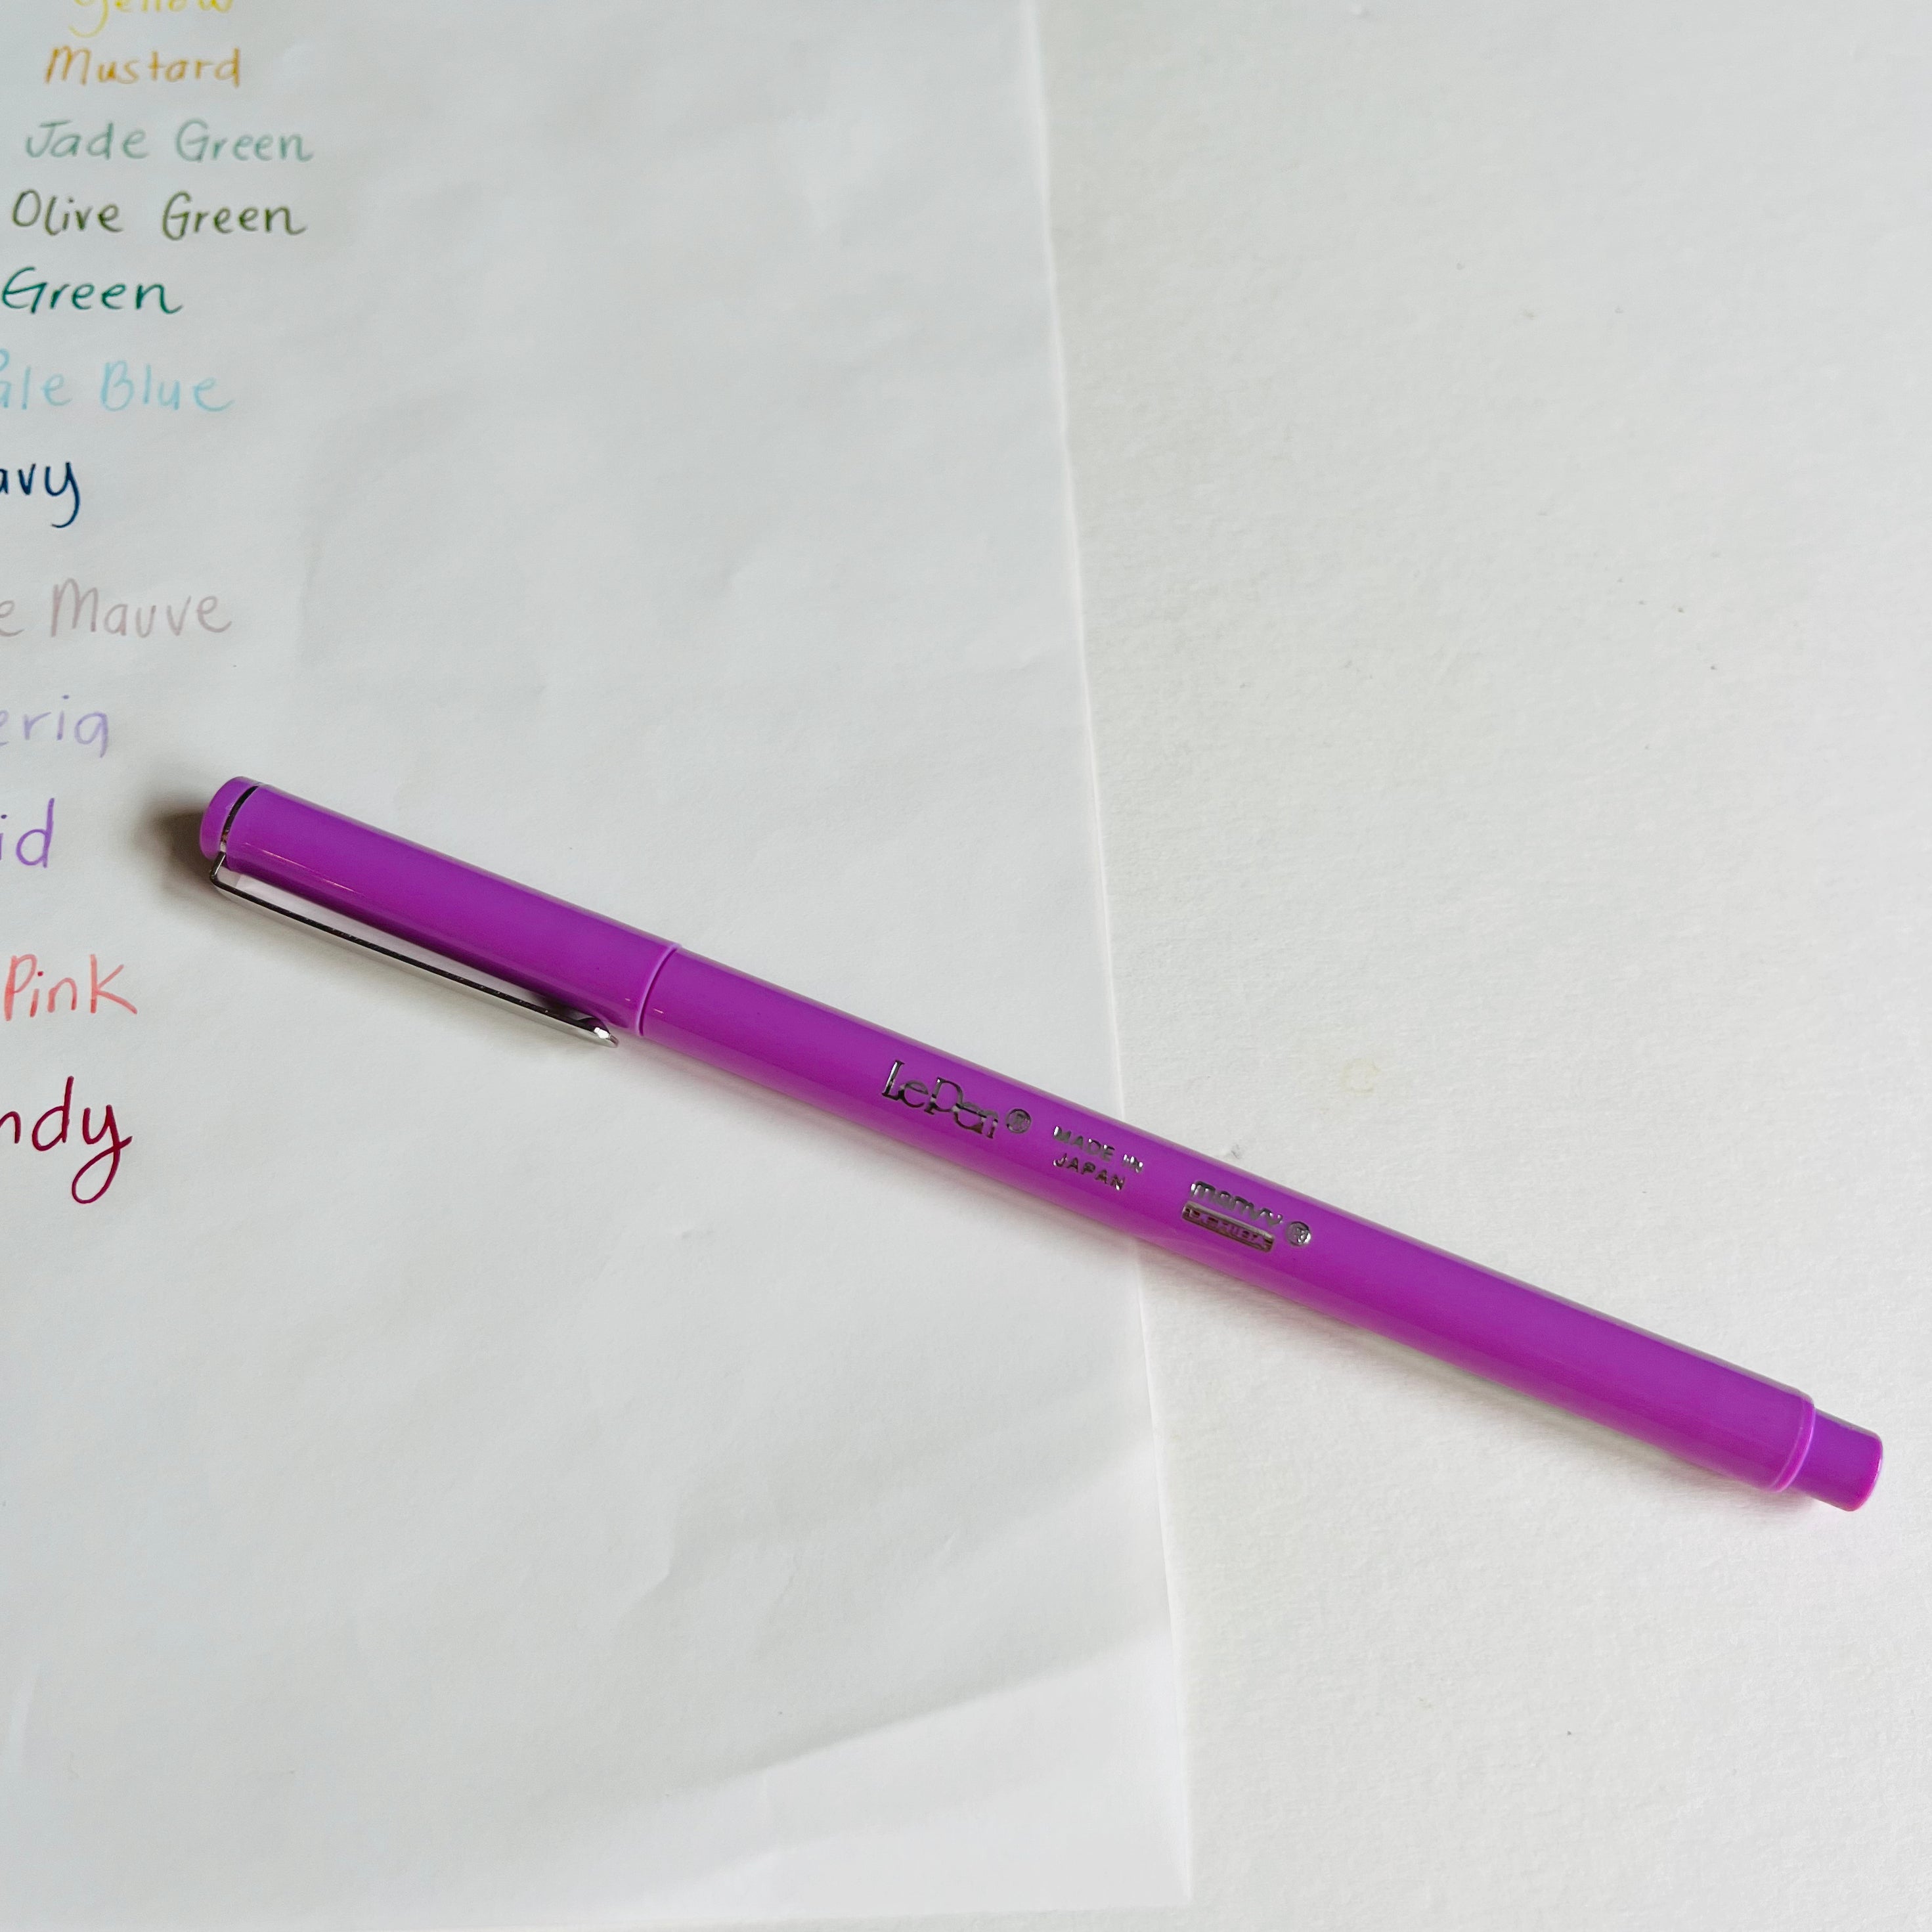 Yellow
Mustard
Jade Green
Olive Green
Green
ale Blue
avy
e Mauve
eria
id
Pink
ndy
LePen®
MADE IN
JAPAN
marvy®
UCHIDA